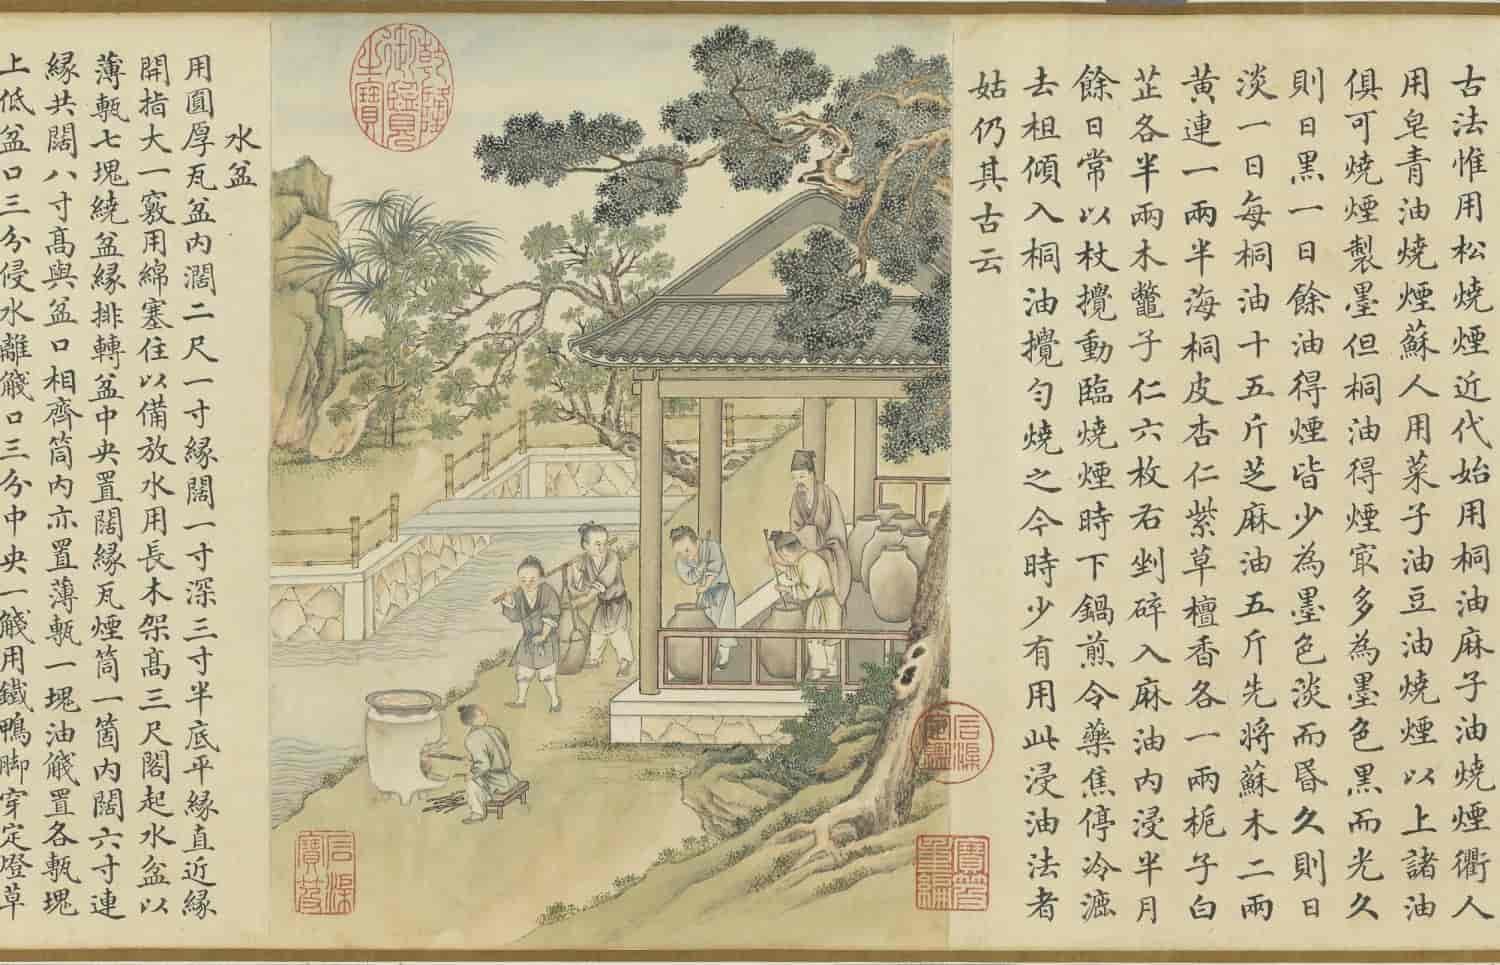 古法惟用松燒煙近代始用桐油麻子油燒煙衢人
用皂青油燒煙蘇人用菜子油豆油燒煙以上諸油
俱可燒煙製墨但桐油得煙冣多為墨色黒而光久
則日黒一日餘油得煙皆少為墨色淡而昬久則日
淡一日每桐油十五斤芝麻油五斤先將蘇木二兩
黄連一兩半海桐皮杏仁紫草檀香各一兩梔子白
芷各半兩木鼈子仁六枚右剉碎入麻油内浸半月
餘日常以杖攪動臨燒煙時下鍋煎令藥焦停冷漉
去柤傾入桐油攪勻燒之今時少有用此浸油法者
姑仍其古云
乾隆
御覽
之寶
信天
主人
寶笈
重編
水盆
用圓厚瓦盆内濶二尺一寸緣闊一寸深三寸半底平緣直近緣
開指大一竅用綿塞住以備放水用長木架髙三尺閣起水盆以
薄甎七塊繞盆緣排轉盆中央置闊緣瓦煙筒一箇内闊六寸連
緣共闊八寸髙與盆口相齊筒内亦置薄甎一塊油醆置各甎塊
上低盆口三分侵水離醆口三分中央一醆用鐵鴨脚穿定燈草